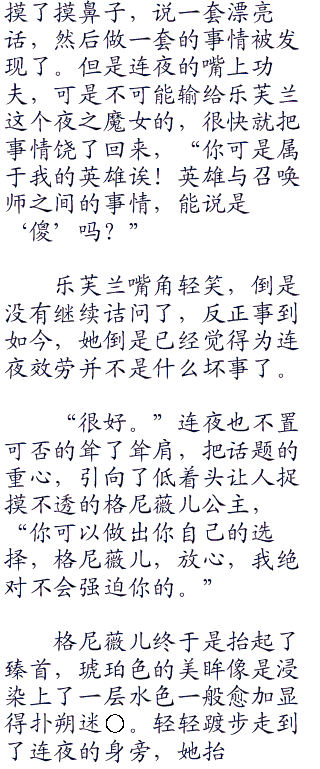 摸了摸鼻子，说一套漂亮
话，然后做一套的事情被发
现了。但是连夜的嘴上功
夫，可是不可能输给乐芙兰
这个夜之魔女的，很快就把
事情饶了回来，“你可是属
于我的英雄诶！英雄与召唤
师之间的事情，能说是
‘傻’吗？”
乐芙兰嘴角轻笑，倒是
没有继续诘问了，反正事到
如今，她倒是已经觉得为连
夜效劳并不是什么坏事了。
“很好。”连夜也不置
可否的耸了耸肩，把话题的
重心，引向了低着头让人捉
摸不透的格尼薇儿公主，
“你可以做出你自己的选
择，格尼薇儿，放心，我绝
对不会强迫你的。”
格尼薇儿终于是抬起了
臻首，琥珀色的美眸像是浸
染上了一层水色一般愈加显
得扑朔迷○。轻轻踱步走到
了连夜的身旁，她抬